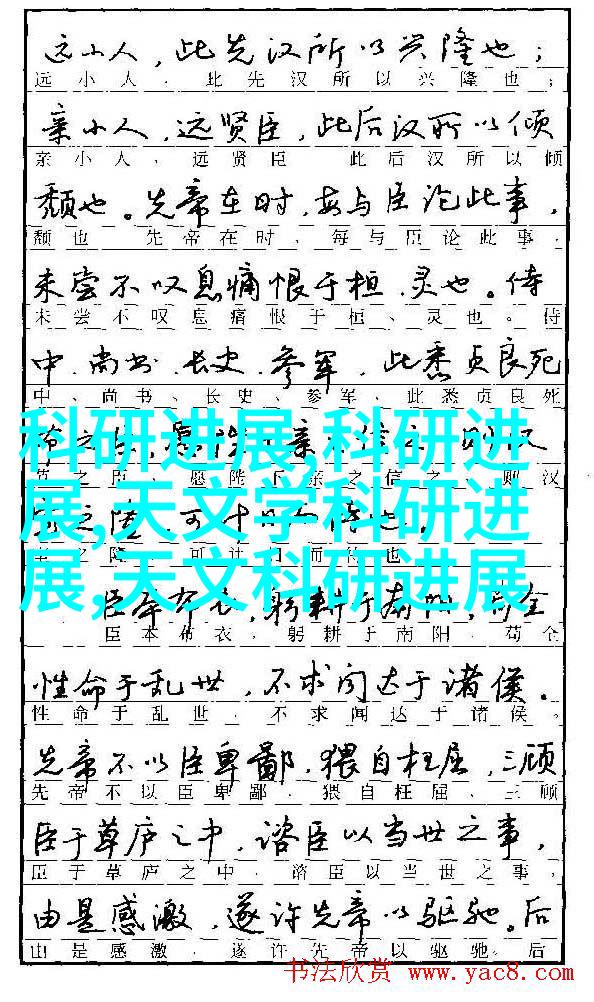 远小人，此先汉所以兴隆也；
远小人，此先汉所以兴隆也；
亲小人，远贤臣，此后汉所以倾
亲小人，远贤臣 此后汉所以倾
颓也。先帝在时，每与臣论此事，
颓也 先帝在时，每与臣论此事，
未尝不叹息痛恨于桓、灵也。侍
未尝不叹息痛恨于桓、灵也。侍
中、尚书、长史、参军，此悉贞良死
中、尚书、长史、参军，此悉贞良死
科研进展,科研进
展,天文学科研进
展,天文科研进展
之臣，愿陛下亲之信之，则汉
之隆，可计日而待也
臣本布衣，躬耕于南阳，苟全
臣本布衣，躬耕于南阳，苟全
性命于乱世，不求闻达于诸侯。
性命于乱世，不求闻达于诸侯。
先帝不以臣卑鄙，猥自枉屈，三顾
先帝不以臣卑鄙，猥自枉屈、三顾
臣于草庐之中，谘臣以当世之事，
臣于草庐之中，谘臣以当世之事，
由是感激，遂许先帝以驱驰。后
由是感激，遂许先帝以驱驰。后
书法欣赏 www.yac8.com